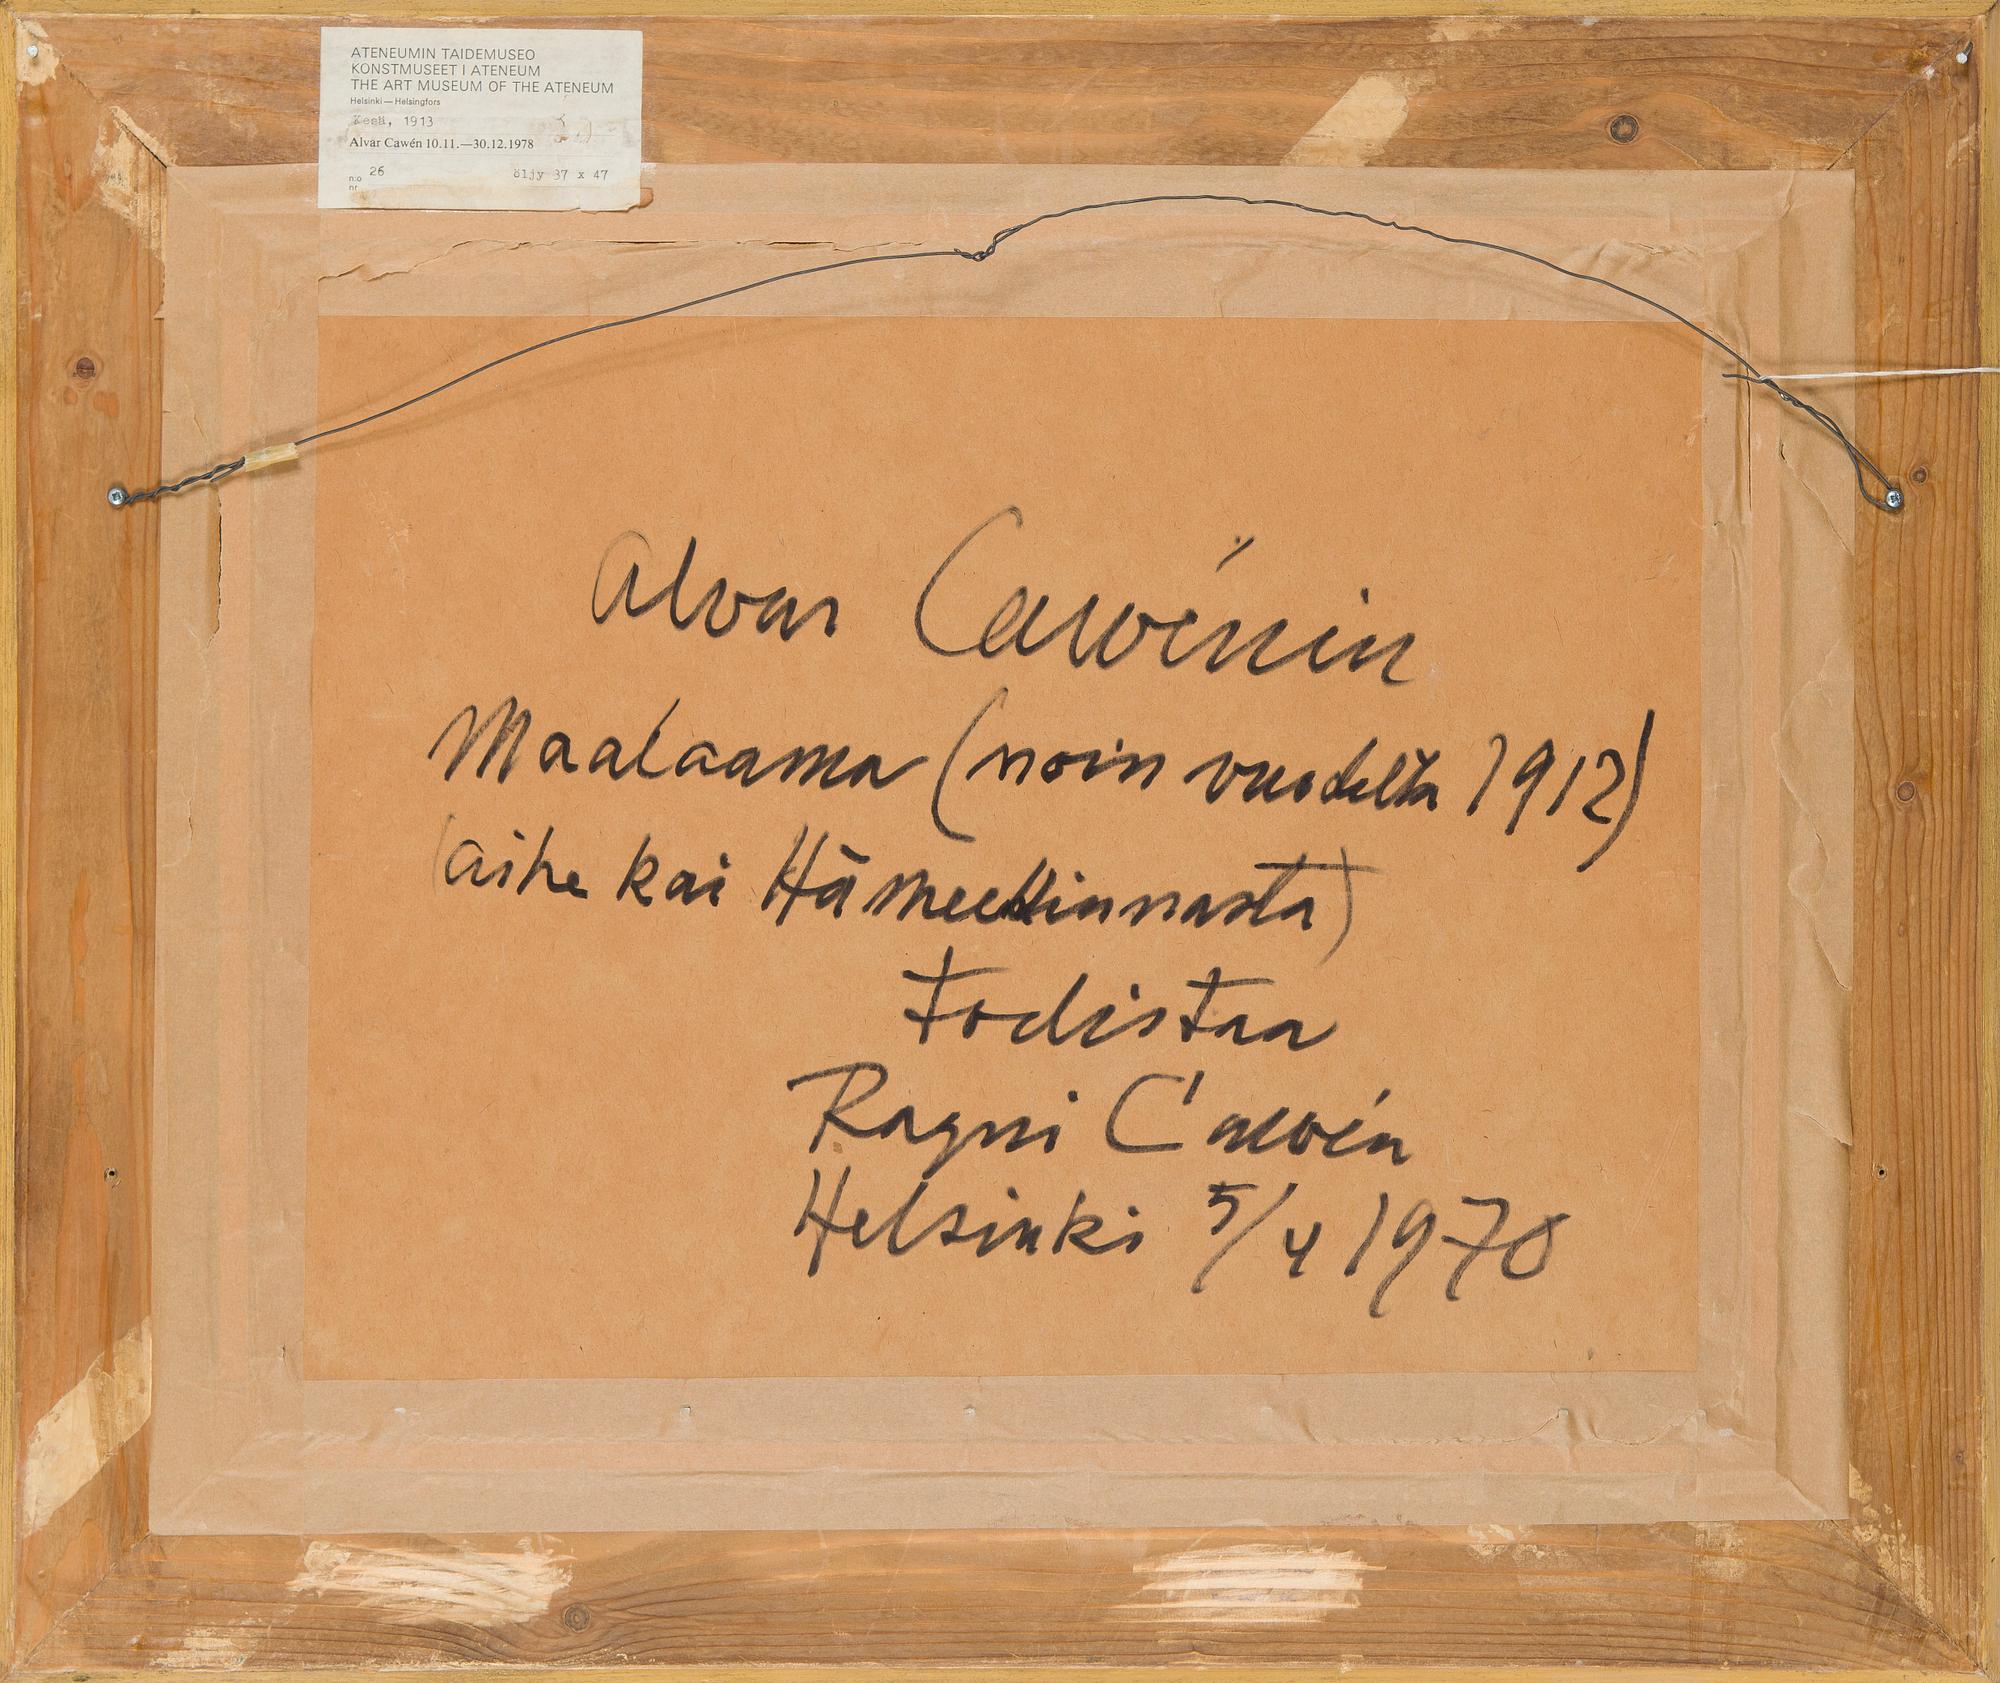 ATENEUMIN TAIDEMUSEO
KONSTMUSEET I ATENEUM
THE ART MUSEUM OF THE ATENEUM
Helsinki — Helsingfors
Kesä, 1913
Alvar Cawén 10.11.—30.12.1978
n:o 26 öljy 37 x 47
nr
Alvar Cawénin
Maalaama (noin vuodelta 1912)
(aihe kai Hämeenlinnasta)
todistaa
Ragni Cawén
Helsinki 5/4 1970